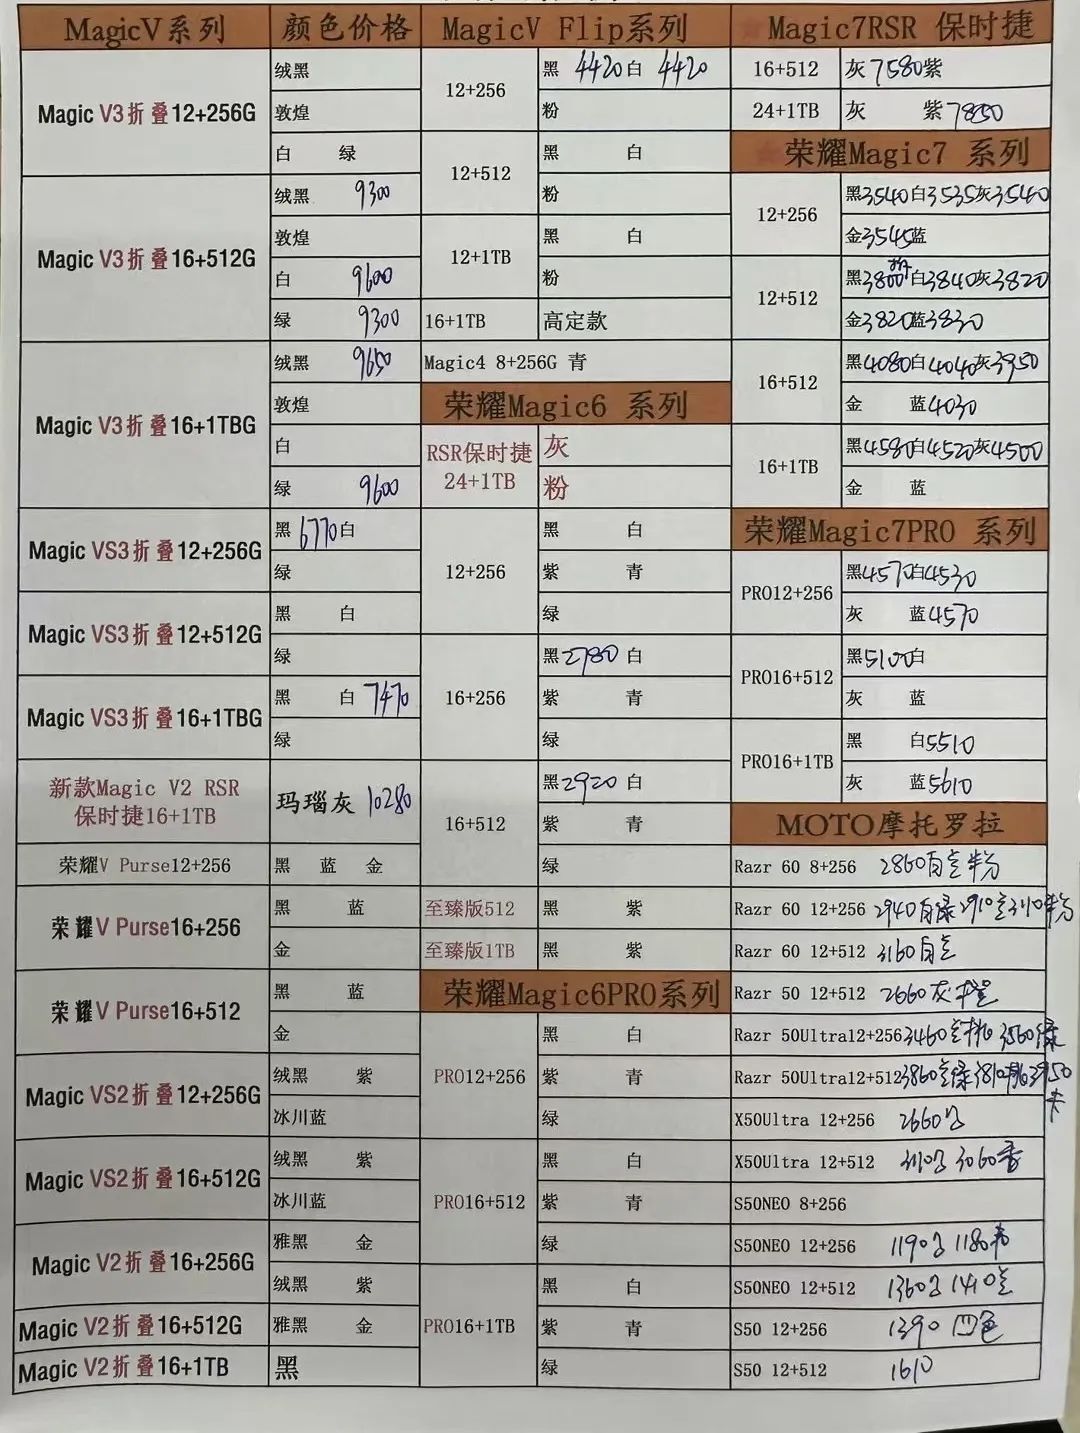 MagicV系列
颜色价格
Magic V3折叠12+256G
绒黑
敦煌
白 绿
Magic V3折叠16+512G
绒黑 9300
敦煌
白 9600
绿 9300
Magic V3折叠16+1TBG
绒黑 9650
敦煌
白
绿 9600
Magic VS3折叠12+256G
黑 6770 白
绿
Magic VS3折叠12+512G
黑 白
绿
Magic VS3折叠16+1TBG
黑 白 7470
绿
新款Magic V2 RSR
保时捷16+1TB
玛瑙灰 10280
荣耀V Purse12+256
黑 蓝 金
荣耀V Purse16+256
黑 蓝
金
荣耀V Purse16+512
黑 蓝
金
Magic VS2折叠12+256G
绒黑 紫
冰川蓝
Magic VS2折叠16+512G
绒黑 紫
冰川蓝
Magic V2折叠16+256G
雅黑 金
绒黑 紫
Magic V2折叠16+512G
雅黑 金
Magic V2折叠16+1TB
黑
MagicV Flip系列
12+256
黑 4420 白 4420
粉
12+512
黑 白
粉
12+1TB
黑 白
粉
16+1TB
高定款
Magic4 8+256G 青
荣耀Magic6 系列
RSR保时捷
24+1TB
灰
粉
12+256
黑 白
紫 青
绿
16+256
黑 2780 白
紫 青
绿
16+512
黑 2920 白
紫 青
绿
至臻版512
黑 紫
至臻版1TB
黑 紫
荣耀Magic6PRO系列
PRO12+256
黑 白
紫 青
绿
PRO16+512
黑 白
紫 青
绿
PRO16+1TB
黑 白
紫 青
绿
Magic7RSR 保时捷
16+512
灰 7580 紫
24+1TB
灰 紫 7850
荣耀Magic7 系列
12+256
黑3540白3535灰3540
金3545蓝
12+512
黑3800白3840灰3820
金3820蓝3830
16+512
黑4080白4040灰3950
金 蓝4030
16+1TB
黑4580白4520灰4500
金 蓝
荣耀Magic7PRO 系列
PRO12+256
黑4570白4530
灰 蓝4570
PRO16+512
黑5100白
灰 蓝
PRO16+1TB
黑 白5510
灰 蓝5610
MOTO摩托罗拉
Razr 60 8+256 2860
Razr 60 12+256 2940 2910
Razr 60 12+512 3160
Razr 50 12+512 2660灰
Razr 50Ultra12+256 3460 3560绿
Razr 50Ultra12+512 3860 3810
X50Ultra 12+256 2660
X50Ultra 12+512 3060
S50NEO 8+256
S50NEO 12+256 1190 1180
S50NEO 12+512 1360 1410
S50 12+256 1390 四色
S50 12+512 1610